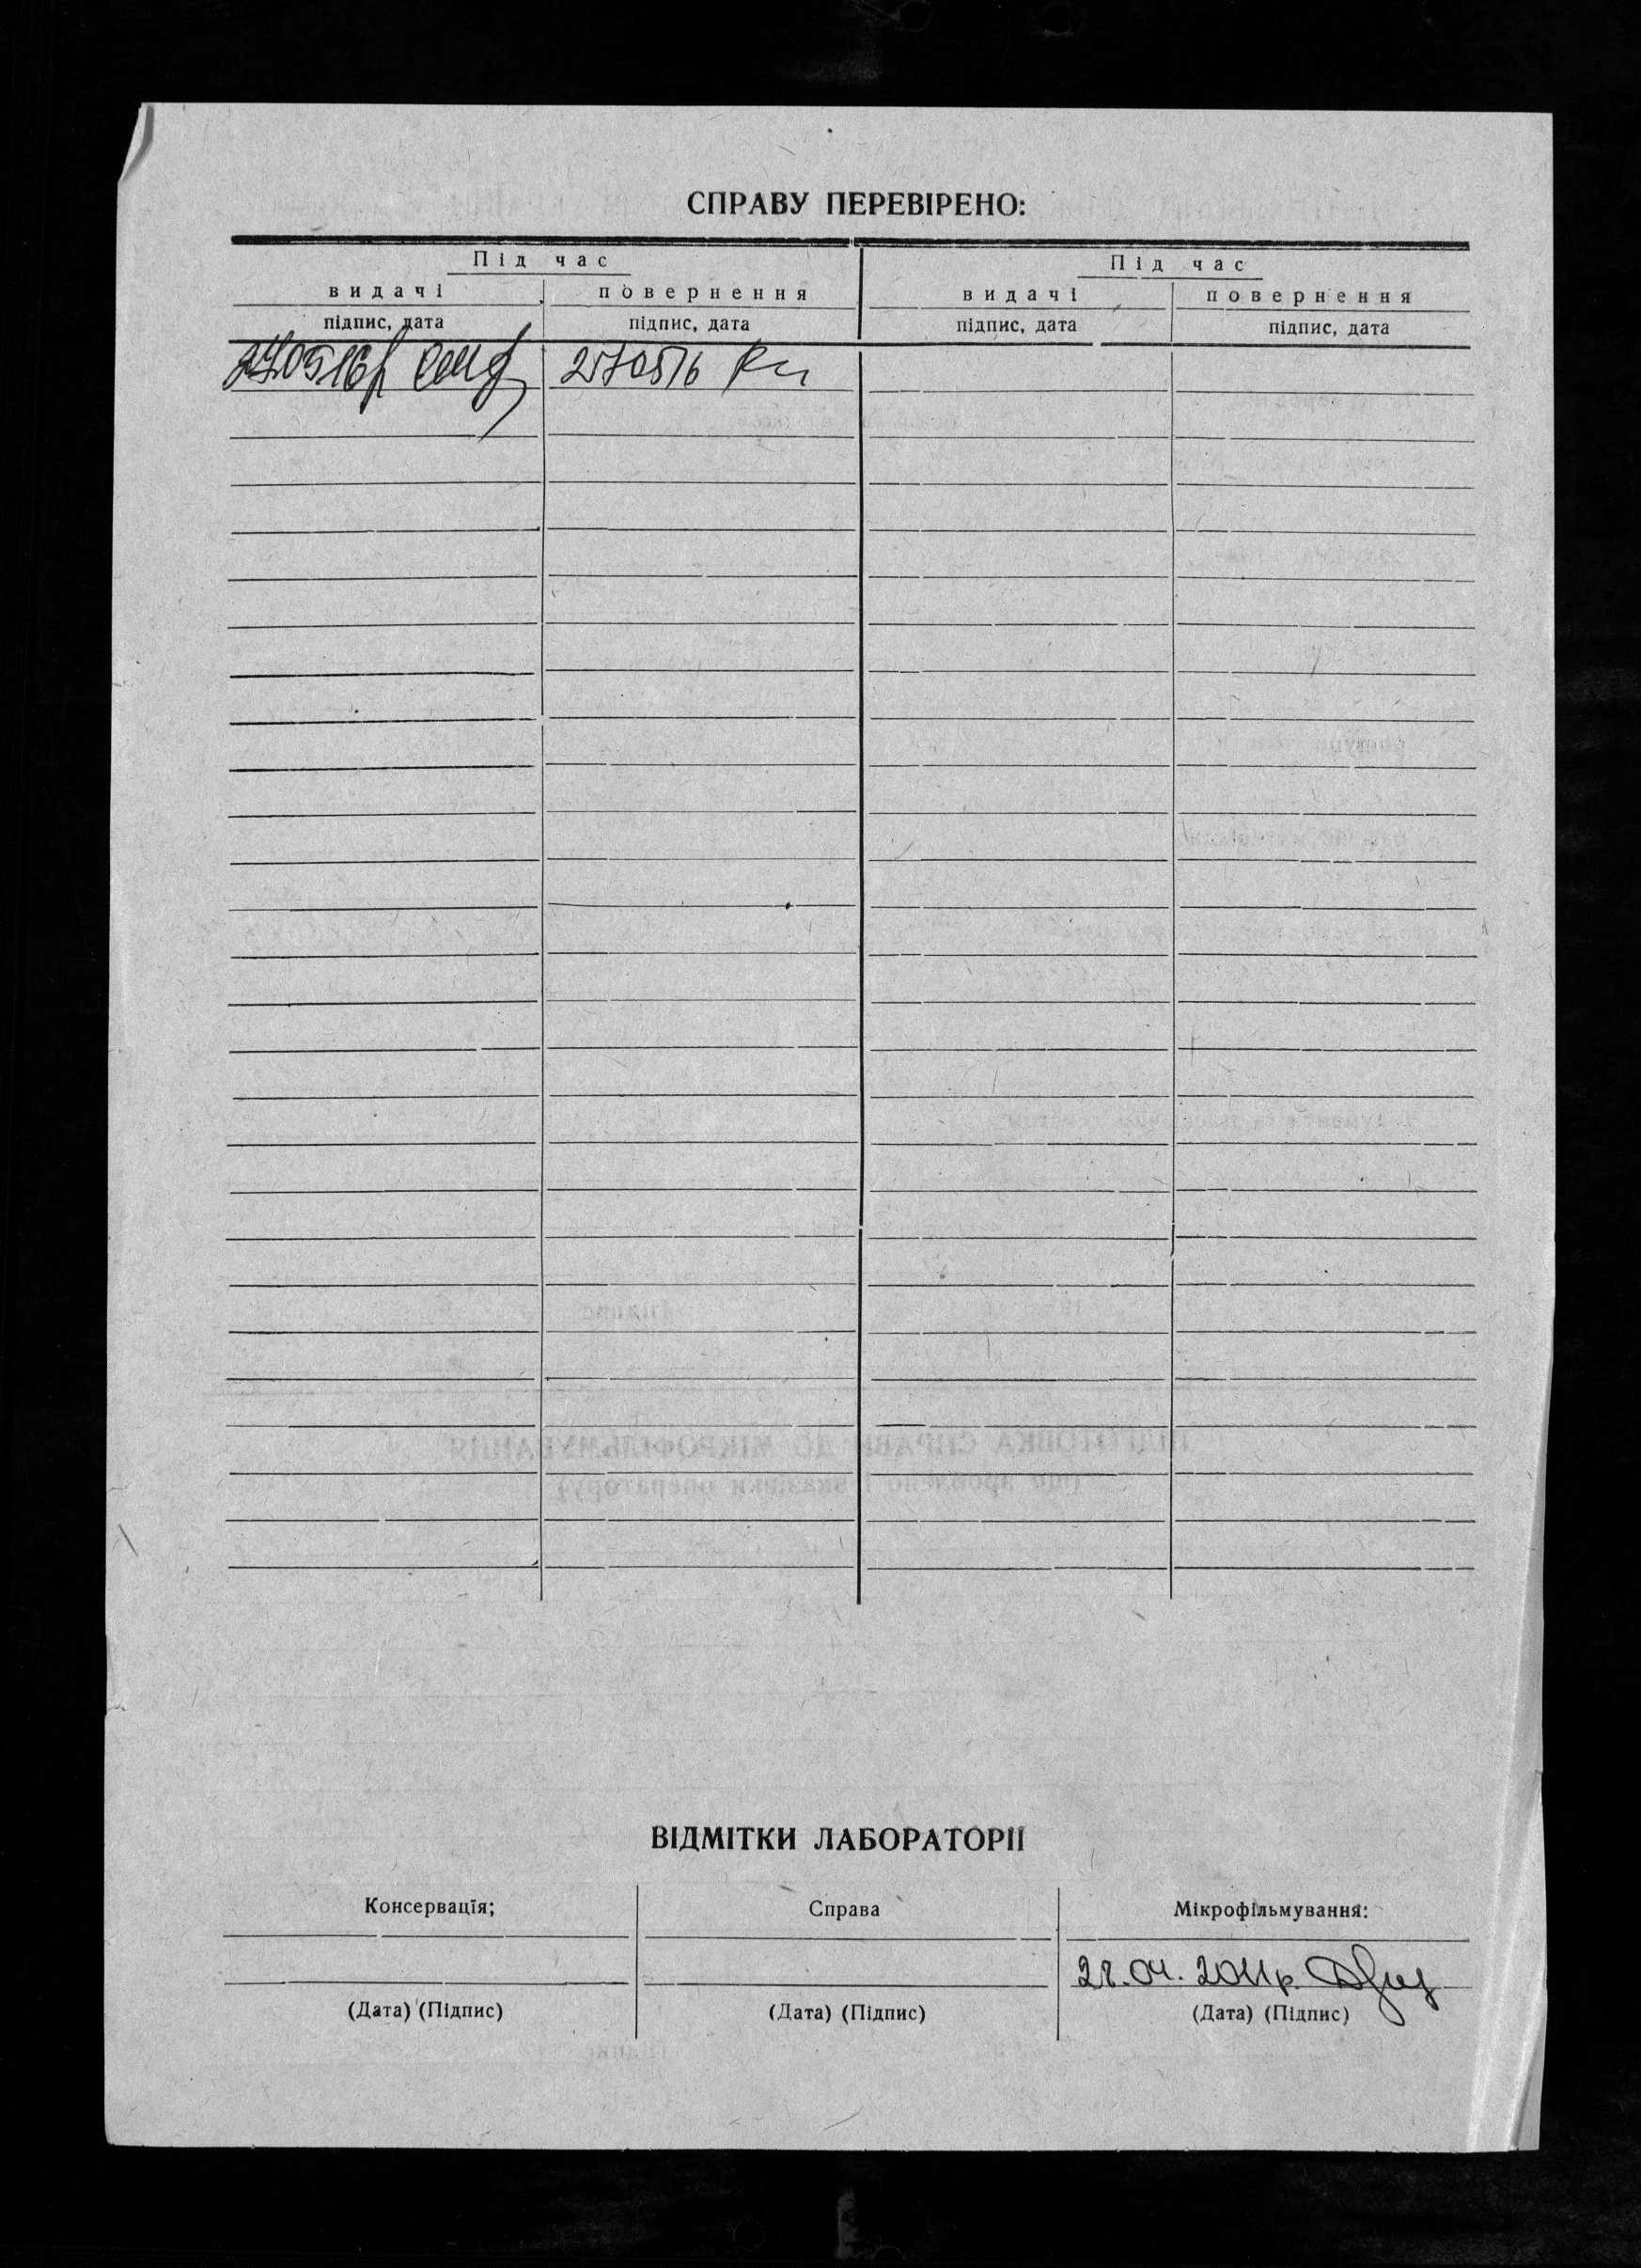 СПРАВУ ПЕРЕВІРЕНО:
Під час Під час
видачі повернення видачі повернення
підпис, дата підпис, дата підпис, дата підпис, дата
270516р 270516
ВІДМІТКИ ЛАБОРАТОРІЇ
Консервація; Справа Мікрофільмування:
28.04.2011р.
(Дата) (Підпис) (Дата) (Підпис) (Дата) (Підпис)